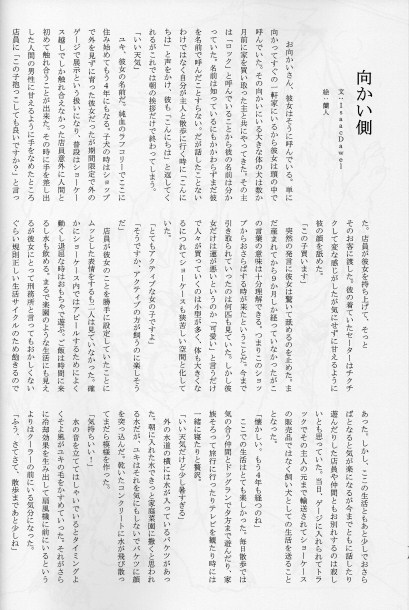 向かい側
文・IsaacDawei
絵・蘭人
お向かいさん、彼女はように呼んでいる。単に
向かってすぐの一軒家にいるから彼女は頭の中で
呼んでいた。その向かいにいる大きな体の犬は数か
月前に家を買い取った主と共にやってきた。その主
は「ロック」と呼んでいることから彼の名前は分か
っていた。名前は知っているにもかかわらずまだ彼
を名前で呼んだことすらない。だが話したことない
わけではなく自分が主人と散歩に行く時に「こんに
ちは」と声をかけ、彼も「こんにちは」と返してく
れるがこれでは朝の挨拶だけで終わってしまう。
「いい天気」
ユキ、彼女の名前だ。純血のラフコリーでここに
住み始めてもう4年にもなる。子犬の時はショップ
で外を見ずに育った彼女だったが期間限定で外の
ゲージで展示という扱いになり、普段はショーケー
ス越しでしか触れ合えなかった店員意外に人間と
初めて触れ合うことが出来た。その時に手を差し出
した人間の男性に甘えるように手をなめたところ
店員に「この子抱っこしても良いですか?」と言っ
た。店員が彼女を持ち上げて、そっと
そのお客に渡した。彼の着ていたセーターはチクチ
クして変な感じがしたが気にせずに甘えるように
彼の顔を舐めた。
「この子買います」
突然の発言に彼女は驚いて舐めるのを止めた。ま
だ産まれてから9か月しか経っていなかったがこ
の言葉の意味は十分理解できる。つまりこのショッ
プからおさらばする時が来たということだ。今まで
引き取られていったのは何匹も見ていた。しかし彼
女だけは運が悪いというのか「可愛い」と言うだけ
で人々が買っていくのは小型が多く、体も大きくな
るにつれてショーケースも狭苦しい空間と化して
いた。
「とてもアクティブな女の子ですよ」
「そうですか。アクティブの方が飼うのに楽しそう
だ」
店員が彼女のことを勝手に設定していたことに
ムッとした表情をするも二人は見ていなかった。確
かにショーケース内ではアピールするためによく
動くし退屈な時はおもちゃで遊ぶ。ご飯は時間に来
るし水も飲める。まるで楽園のような生活にも見え
るが彼女にとって刑務所と言ってもおかしくない
ぐらい規則正しい生活サイクルのため飽きるので
あった。しかし、ここの生活ともあと少しでおさら
ばとなると気が楽になるが今までともに話したり
遊んだりした店員や仲間ともお別れするのは寂し
いとも思っていた。当日、ゲージに入れられてトラ
ックでその主人の元まで輸送されてショーケース
の販売品ではなく飼い犬としての生活を送ること
となった。
「懐かしい。もう4年も経つのね」
ここでの生活はとても楽しかった。毎日散歩では
気の合う仲間とドッグランで夕方まで遊んだり、家
族そろって旅行に行ったりテレビを観たり時には
一緒に寝たりと贅沢。
「いい天気だけど少し暑すぎる」
外の水道の横には水が入っているバケツがあっ
た。朝に入れた水できっと家庭菜園に撒くと思われ
る水だが、ユキはそれを気にもしないでバケツに顔
を突っ込んだ。乾いたコンクリートに水が飛び散っ
てまだら模様を作った。
「気持ちいい!」
水の音を立ててはしゃいでいるとタイミングよ
くそよ風がユキの毛をかすめていった。それがさら
に冷却効果を生み出して扇風機に前にいるという
よりはクーラーの前にいる気分になった。
「ふう。さてさて、散歩まであと少しね」